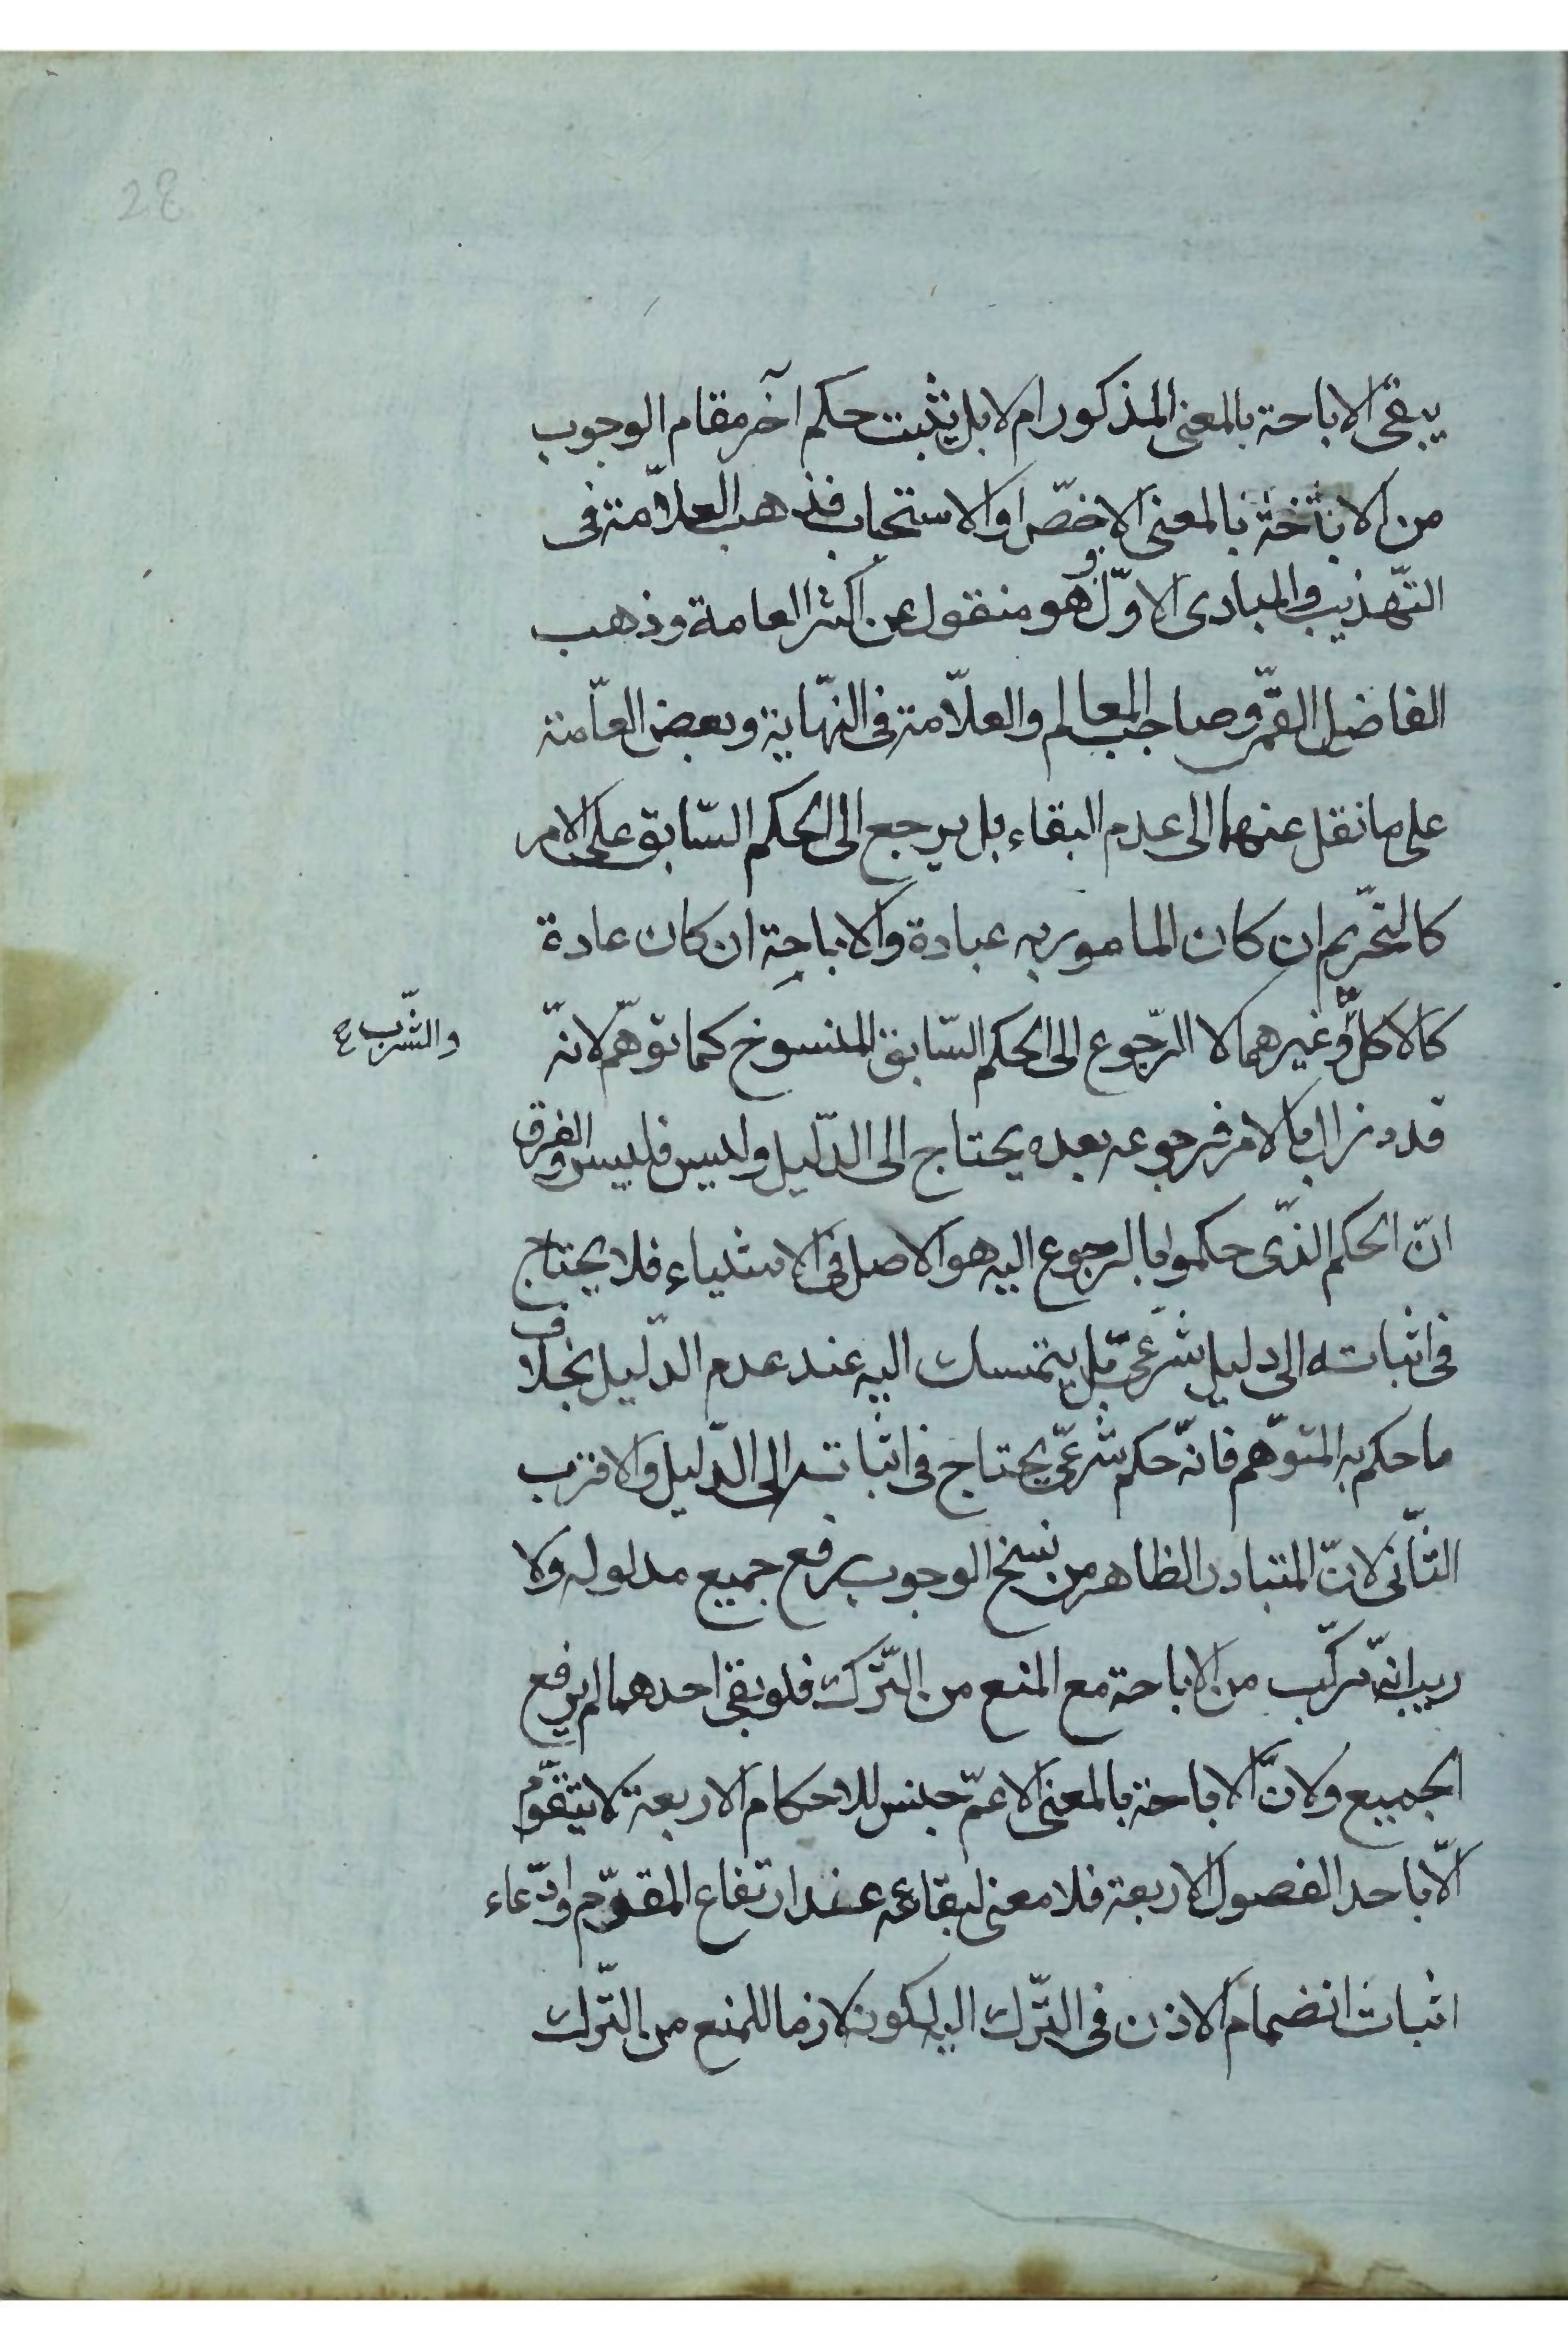 28
يبقى الاباحة بالمعنى المذكور ام لا بل يثبت حكم آخر مقام الوجوب
من الاباحة بالمعنى الاخصّ او الاستحباب فذهب العلّامة فى
التّهذيب والمبادى الاوّل وهو منقول عن اكثر العامة وذهب
الفاضل القمّى وصاحب المعالم والعلّامة فى النّهاية وبعض العامّة
على ما نقل عنهما الى عدم البقاء بل يرجع الى الحكم السّابق على الامر
كالتحريم ان كان المامور به عبادة والاباحة ان كان عادة
كالاكل وغيرهما لا الرّجوع الى الحكم السّابق المنسوخ كما توهّم لانّه
والشّرب ع
قد زال بالامر فرجوعه بعده يحتاج الى الدّليل وليس فليس والفرق
انّ الحكم الّذى حكموا بالرجوع اليه هو الاصل فى الاشياء فلا يحتاج
فى اثباته الى دليل شرعىّ بل يتمسك اليه عند عدم الدّليل بخلاف
ما حكم به المتوهّم فانّه حكم شرعىّ يحتاج فى اثباته الى الدّليل والاقرب
الثّانى لانّ المتبادر الظاهر من نسخ الوجوب رفع جميع مدلوله ولا
ريب انّه مركّب من الاباحة مع المنع من التّرك فلو بقى احدهما لم يرفع
الجميع ولانّ الاباحة بالمعنى الاعمّ جنس للاحكام الاربعة لا يتقوّم
الّا باحد الفصول الاربعة فلا معنى لبقائه عند ارتفاع المقوّم وادّعاء
اثبات انضمام الاذن فى التّرك اليه لكونه لازما للمنع من التّرك